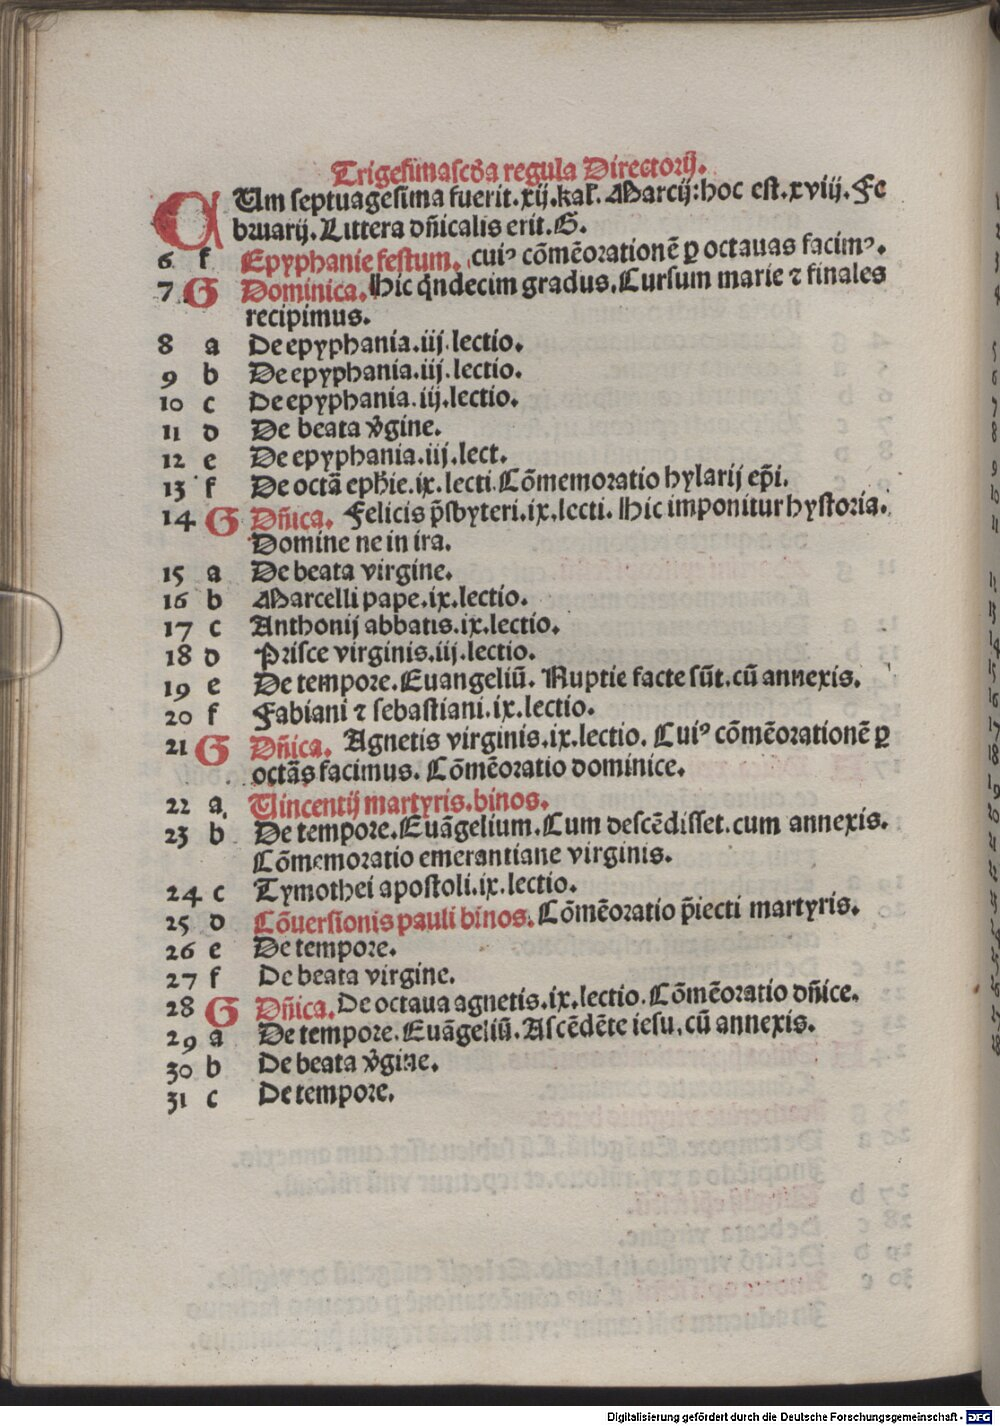 Trigesimascḋa regula Directorij.
CUm septuagesima fuerit.xij.kal̕. Marcij:hoc est.xviij.Fe
bruarij.Littera dñicalis erit.G.
6 f Epyphanie festum. cuiꝰ cõmẽorationẽ ꝑ octauas facimꝰ.
7 G Dominica. Hic q̃ndecim gradus.Cursum marie ⁊ finales
recipimus.
8 a De epyphania.iij.lectio.
9 b De epyphania.iij.lectio.
10 c De epyphania.iij.lectio.
11 d De beata ṽgine.
12 e De epyphania.iij.lect.
13 f De octã epħie.ix.lecti.Cõmemoratio hylarij ep̃i.
14 G Dñica. Felicis p̃sbyteri.ix.lecti. Hic imponitur hystoria.
Domine ne in ira.
15 a De beata virgine.
16 b Marcelli pape.ix.lectio.
17 c Anthonij abbatis.ix.lectio.
18 d Prisce virginis.iij.lectio.
19 e De tempore.Euangeliũ. Nuptie facte sũt.cũ annexis.
20 f Fabiani ⁊ sebastiani.ix.lectio.
21 G Dñica. Agnetis virginis.ix.lectio. Cuiꝰ cõmẽorationẽ ꝑ
octãs facimus. Cõmẽoratio dominice.
22 a Uincentij martyris.binos.
23 b De tempore.Euãgelium.Cum descẽdisset.cum annexis.
Cõmemoratio emerantiane virginis.
24 c Tymothei apostoli.ix.lectio.
25 d Cõuersionis pauli binos. Cõmẽoratio p̃iecti martyris.
26 e De tempore.
27 f De beata virgine.
28 G Dñica. De octaua agnetis.ix.lectio.Cõmẽoratio dñice.
29 a De tempore.Euãgeliũ.Ascẽdẽte iesu.cũ annexis.
30 b De beata ṽgine.
31 c De tempore.
Digitalisierung gefördert durch die Deutsche Forschungsgemeinschaft - DFG